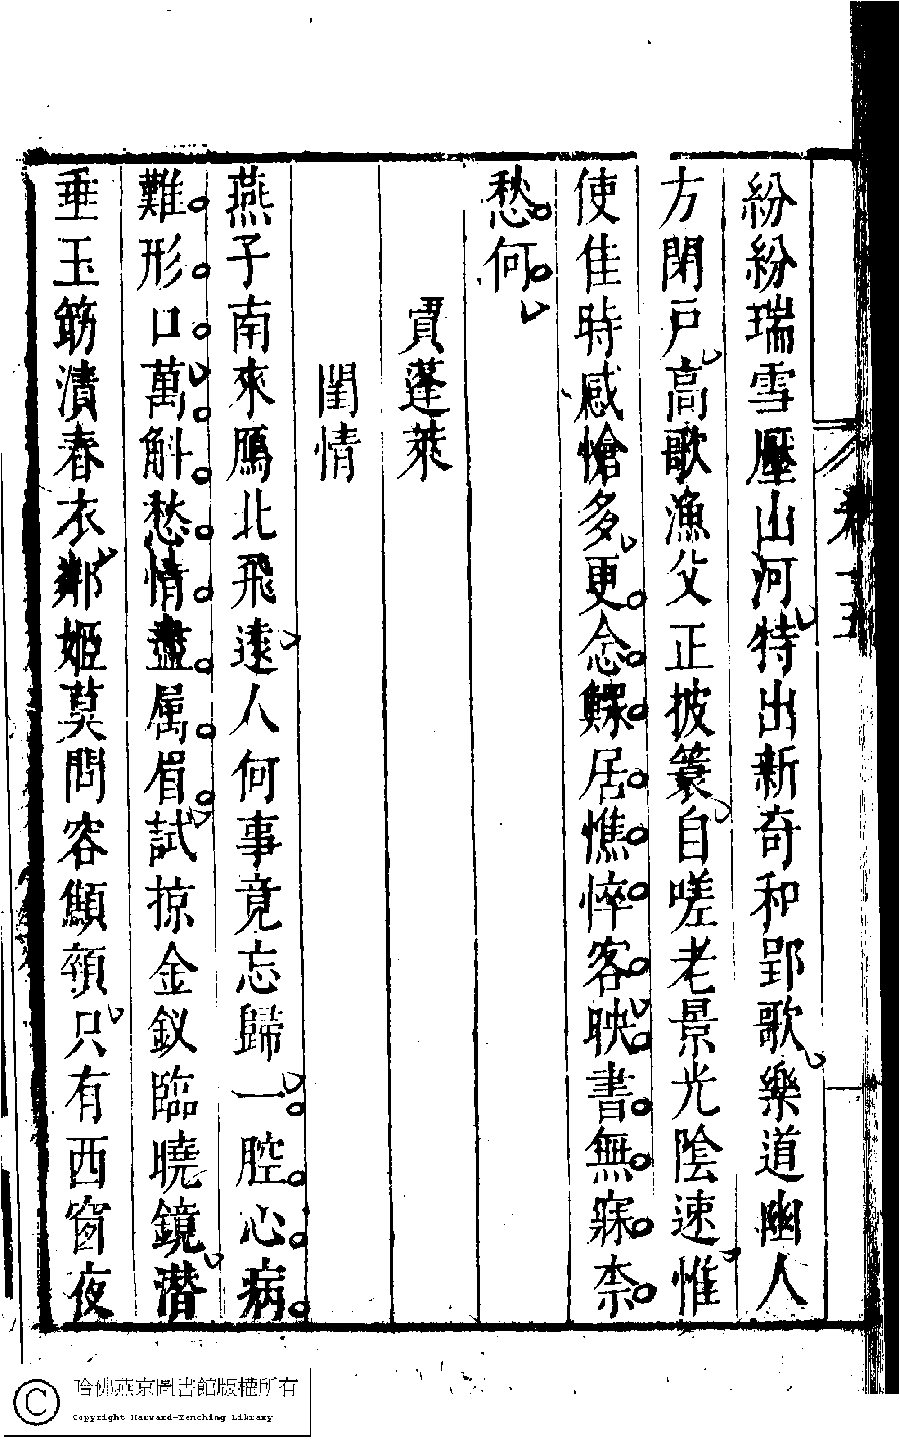 卷十五
紛紛瑞雪壓山河特出新奇和郢歌樂道幽人
方閉戸高歌漁父正披簑自嗟老景光陰速惟
使佳時感愴多更念鰥居憔悴客映書無寐柰
愁何
賈蓬萊
閨情
燕子南來鴈北飛遠人何事竟忘歸一腔心病
難形口萬斛愁情盡属眉試掠金釵臨曉鏡潛
垂玉筯漬春衣鄰姬莫問容顦顇只有西窗夜
哈佛燕京圖書館版權所有
Copyright Harvard-Yenching Library